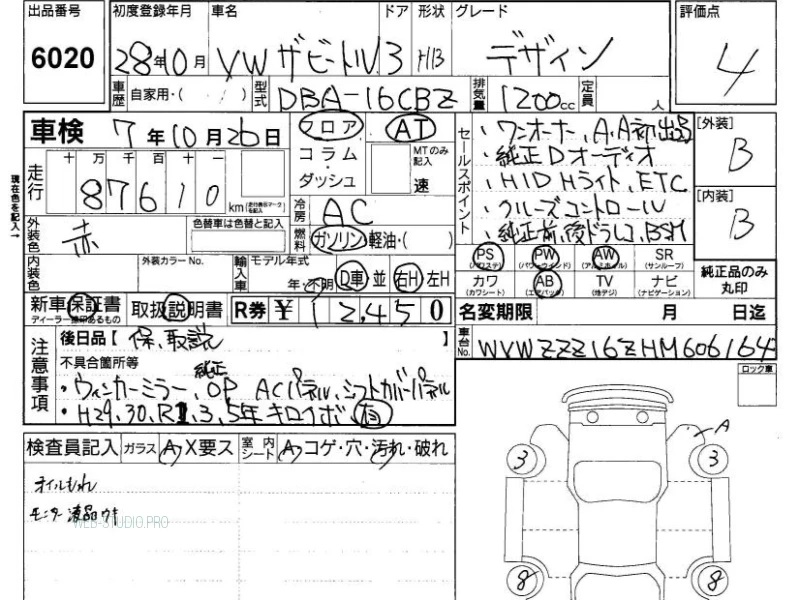 出品番号 初度登録年月 車名 ドア 形状 グレード 評価点
6020 28年10月 VW ザ ビートル 3 H/B デザイン 4
車歴 自家用・( ) 型式 DBA-16CBZ 排気量 1200cc 定員 人
車検 7年10月26日 フロア AT
コラム・ダッシュ MTのみ記入 速
走行 十 万 千 百 十 一
87610 km (走行表示マークを記入)
現在色を記入→
外装色 赤 色替車は色替と記入
冷房 AC
燃料 ガソリン 軽油・( )
内装色 外装カラーNo. 輸入車 モデル年式 年・不明 D車 並 右H 左H
新車保証書 ディーラー捺印あるもの 取扱説明書 R券 ¥12,450
セールスポイント
・ワンオーナー、A・A初出品
・純正Dオーディオ
・HID Hライト、ETC
・クルーズコントロール
・純正前、後ドラレコ、BSM
[外装] B
[内装] B
PS (パワステ) PW (パワーウインド) AW (アルミホイル) SR (サンルーフ)
カワ (カワシート) AB (エアバック) TV (地デジ) ナビ (ナビゲーション)
純正品のみ丸印
名変期限 月 日迄
車台No. WVWZZZ16ZHM606164
注意事項
後日品【 保、取説 】
不具合箇所等
・ウィンカーミラー、純正OP ACパネル、シフトカバーパネル
・H29、30、R1、3、5年キロクボ有
ロック車
検査員記入 ガラス A・X要ス 室内シート A・コゲ・穴・汚れ・破れ
オイルもれ
モニター液晶ウキ
WEB-STUDIO.PRO
A
3 3
8 8